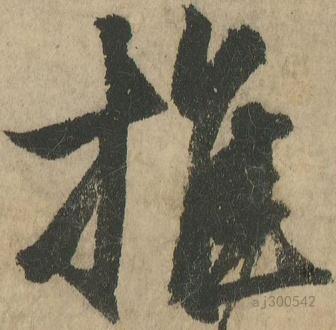 推
aj300542